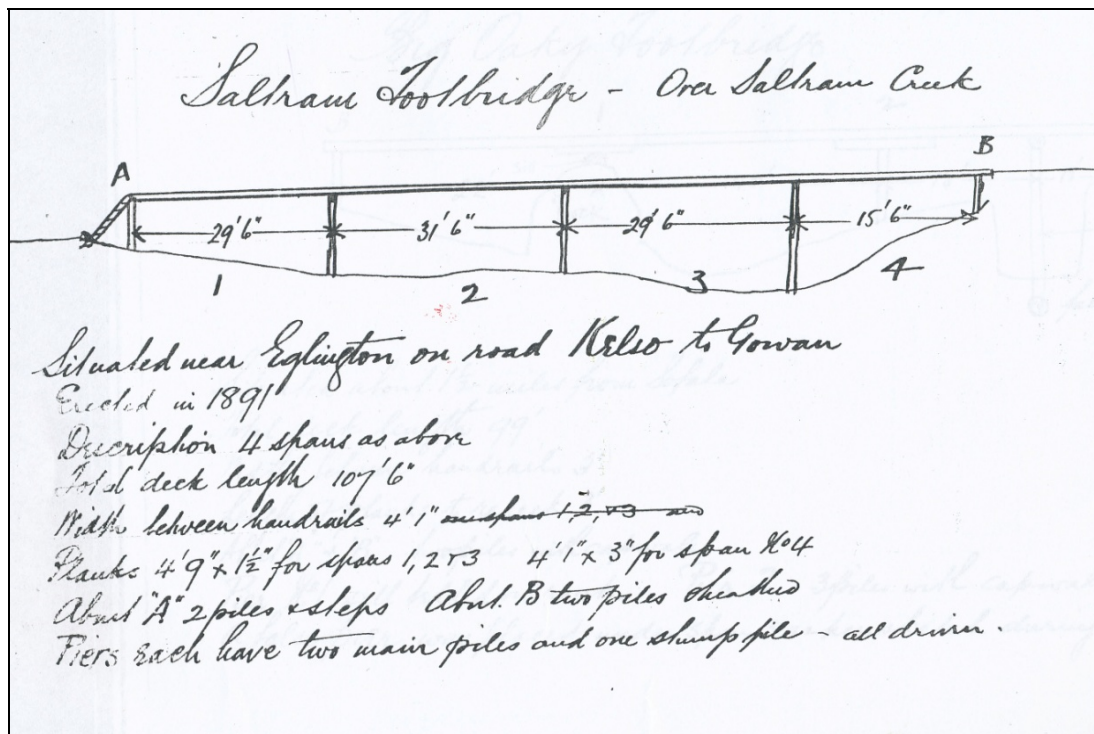 Saltram Footbridge - Over Saltram Creek
A
B
29'6"
31'6"
29'6"
15'6"
1
2
3
4
Situated near Eglington on road Kelso to Gowan
Erected in 1891
Description 4 spans as above
Total deck length 107'6"
Width between handrails 4'1" on spans 1, 2, & 3 and
Planks 4'9" x 1½" for spans 1, 2 & 3 4'1" x 3" for span No 4
Abut "A" 2 piles & steps Abut. B two piles sheathed
Piers each have two main piles and one stump pile - all driven.